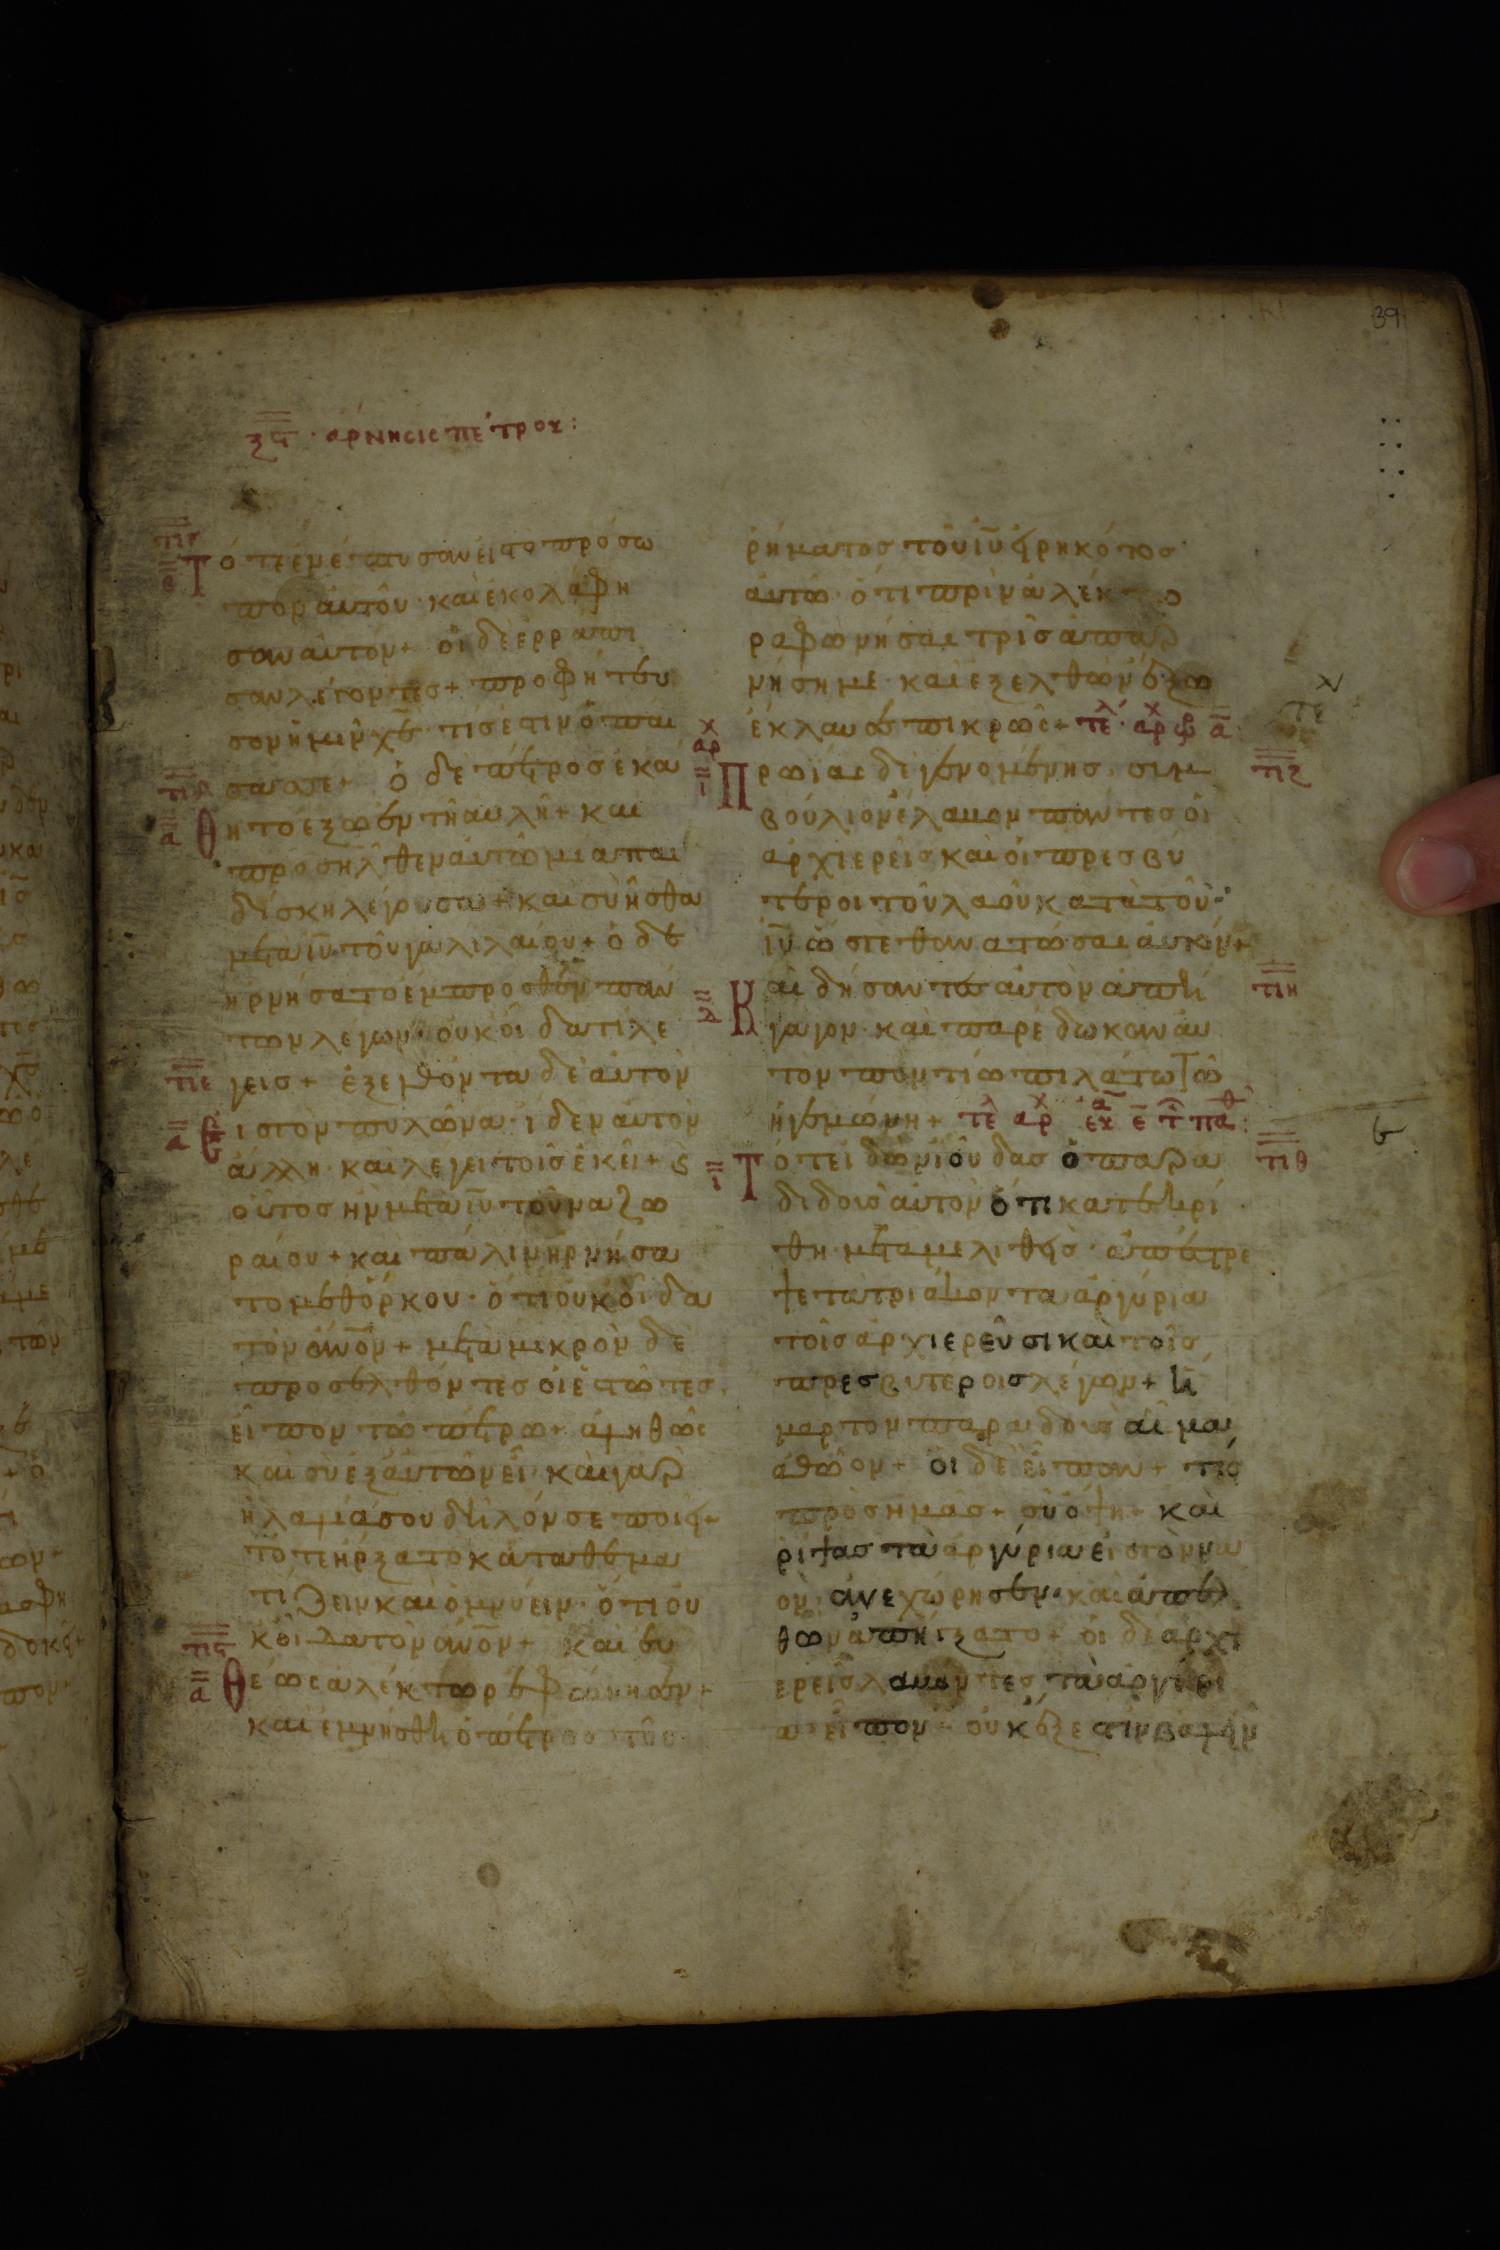 39
ξς · άρνησις πέτρου:
Τότε ἐνέπτυσαν εἰς τὸ πρόσω
πον αὐτοῦ · καὶ ἐκολάφη
σαν αὐτόν + οἱ δὲ ἐρράπι
σαν λέγοντες + προφήτευ
σον ἡμῖν χ̅ε̅ · τίς ἐστιν ὁ παί
σας σε + ὁ δὲ πέτρος ἐκά
θητο ἔξω ἐν τῆ αὐλῆ + καὶ
προσῆλθεν αὐτῶ μία παι
δίσκη λέγουσα + καὶ σὺ ἦσθα
μετὰ ι̅υ̅ τοῦ γαλιλαίου + ὁ δὲ
ἠρνήσατο ἔμπροσθεν παν
των λέγων · οὐκ οἶδα τί λέ
γεις + ἐξελθόντα δὲ αὐτὸν
εἰς τὸν πυλῶνα · ἴδεν αὐτὸν
ἄλλη · καὶ λέγει τοῖς ἐκεῖ + ϛ
οὗτος ἦν μετὰ ι̅υ̅ τοῦ ναζω
ραίου + καὶ πάλιν ἠρνήσα
το μεθ ὅρκου · ὅτι οὐκ οἶδα
τὸν α̅ν̅ο̅ν̅ + μετὰ μικρὸν δὲ
προσελθόντες οἱ ἑστῶτες
εἶπον τῶ πέτρω + ἀληθῶς
καὶ σὺ ἐξ αὐτῶν εἶ · καὶ γὰρ
ἡ λαλιά σου δῆλόν σε ποιεῖ +
τότε ἤρξατο καταθεμα
τίζειν καὶ ὀμνύειν · ὅτι οὐ
κ οἶδα τὸν α̅ν̅ο̅ν̅ + καὶ εὐ
θέως ἀλέκτωρ ἐφώνησεν +
καὶ ἐμνήσθη ὁ πέτρος τοῦ
ῥήματος τοῦ ι̅υ̅ εἰρηκότος
αὐτῶ · ὅτι πρὶν ἀλέκτο
ρα φωνῆσαι τρὶς ἀπαρ
νήση με · καὶ ἐξελθὼν ἔξω
ἔκλαυσε πικρῶς + τε λ · αρ χ
Πρωίας δὲ γενομένης · συμ
βούλιον ἔλαβον πάντες οἱ
ἀρχιερεῖς καὶ οἱ πρεσβύ
τεροι τοῦ λαοῦ κατὰ τοῦ
ι̅υ̅ ὥστε θανατῶσαι αὐτόν +
Καὶ δήσαντες αὐτὸν ἀπή
γαγον · καὶ παρέδωκαν αὐ
τὸν ποντίω πιλάτω τῶ
ἡγεμώνη + τελ αρχ
Τότε ἰδὼν ἰούδας ὁ παρα
διδοὺς αὐτὸν ὅτι κατεκρί
θη · μεταμεληθεὶς · ἀπέστρε
ψε τὰ τριάκοντα ἀργύρια
τοῖς ἀρχιερεῦσι καὶ τοῖς
πρεσβυτέροις λέγων + ἥ
μαρτον παραδοὺς αἷμα
ἀθῶον + οἱ δὲ εἶπον + τί
πρὸς ἡμᾶς + σὺ ὄψη + καὶ
ῥίψας τὰ ἀργύρια εἰς τὸν να
ὸν ἀνεχώρησεν · καὶ ἀπελ
θὼν ἀπήγξατο + οἱ δὲ ἀρχι
ερεῖς λαβόντες τὰ ἀργύρι
α εἶπον · οὐκ ἔξεστιν βαλεῖν